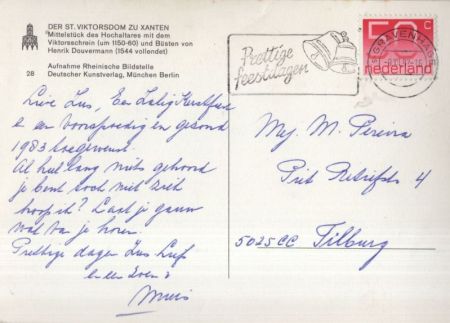 DER ST. VIKTORSDOM ZU XANTEN
Mittelstück des Hochaltares mit dem
Viktorsschrein (um 1150-60) und Büsten von
Henrik Douvermann (1544 vollendet)
Aufnahme Rheinische Bildstelle
28 Deutscher Kunstverlag, München Berlin
Prettige
feestdagen
'S-GRAVENHAGE
50 C
nederland
Lieve Zus, Een Zalig Kerstfeest
en een voorspoedig en gezond
1983 toegewenst.
Al heel lang niets gehoord
je bent toch niet ziek
hoop ik? Laat je gauw
wat van je horen.
Prettige dagen Zus Liefs
en een
Mej. M. Pereira
Piet Retiefstr 4
5025CC Tilburg